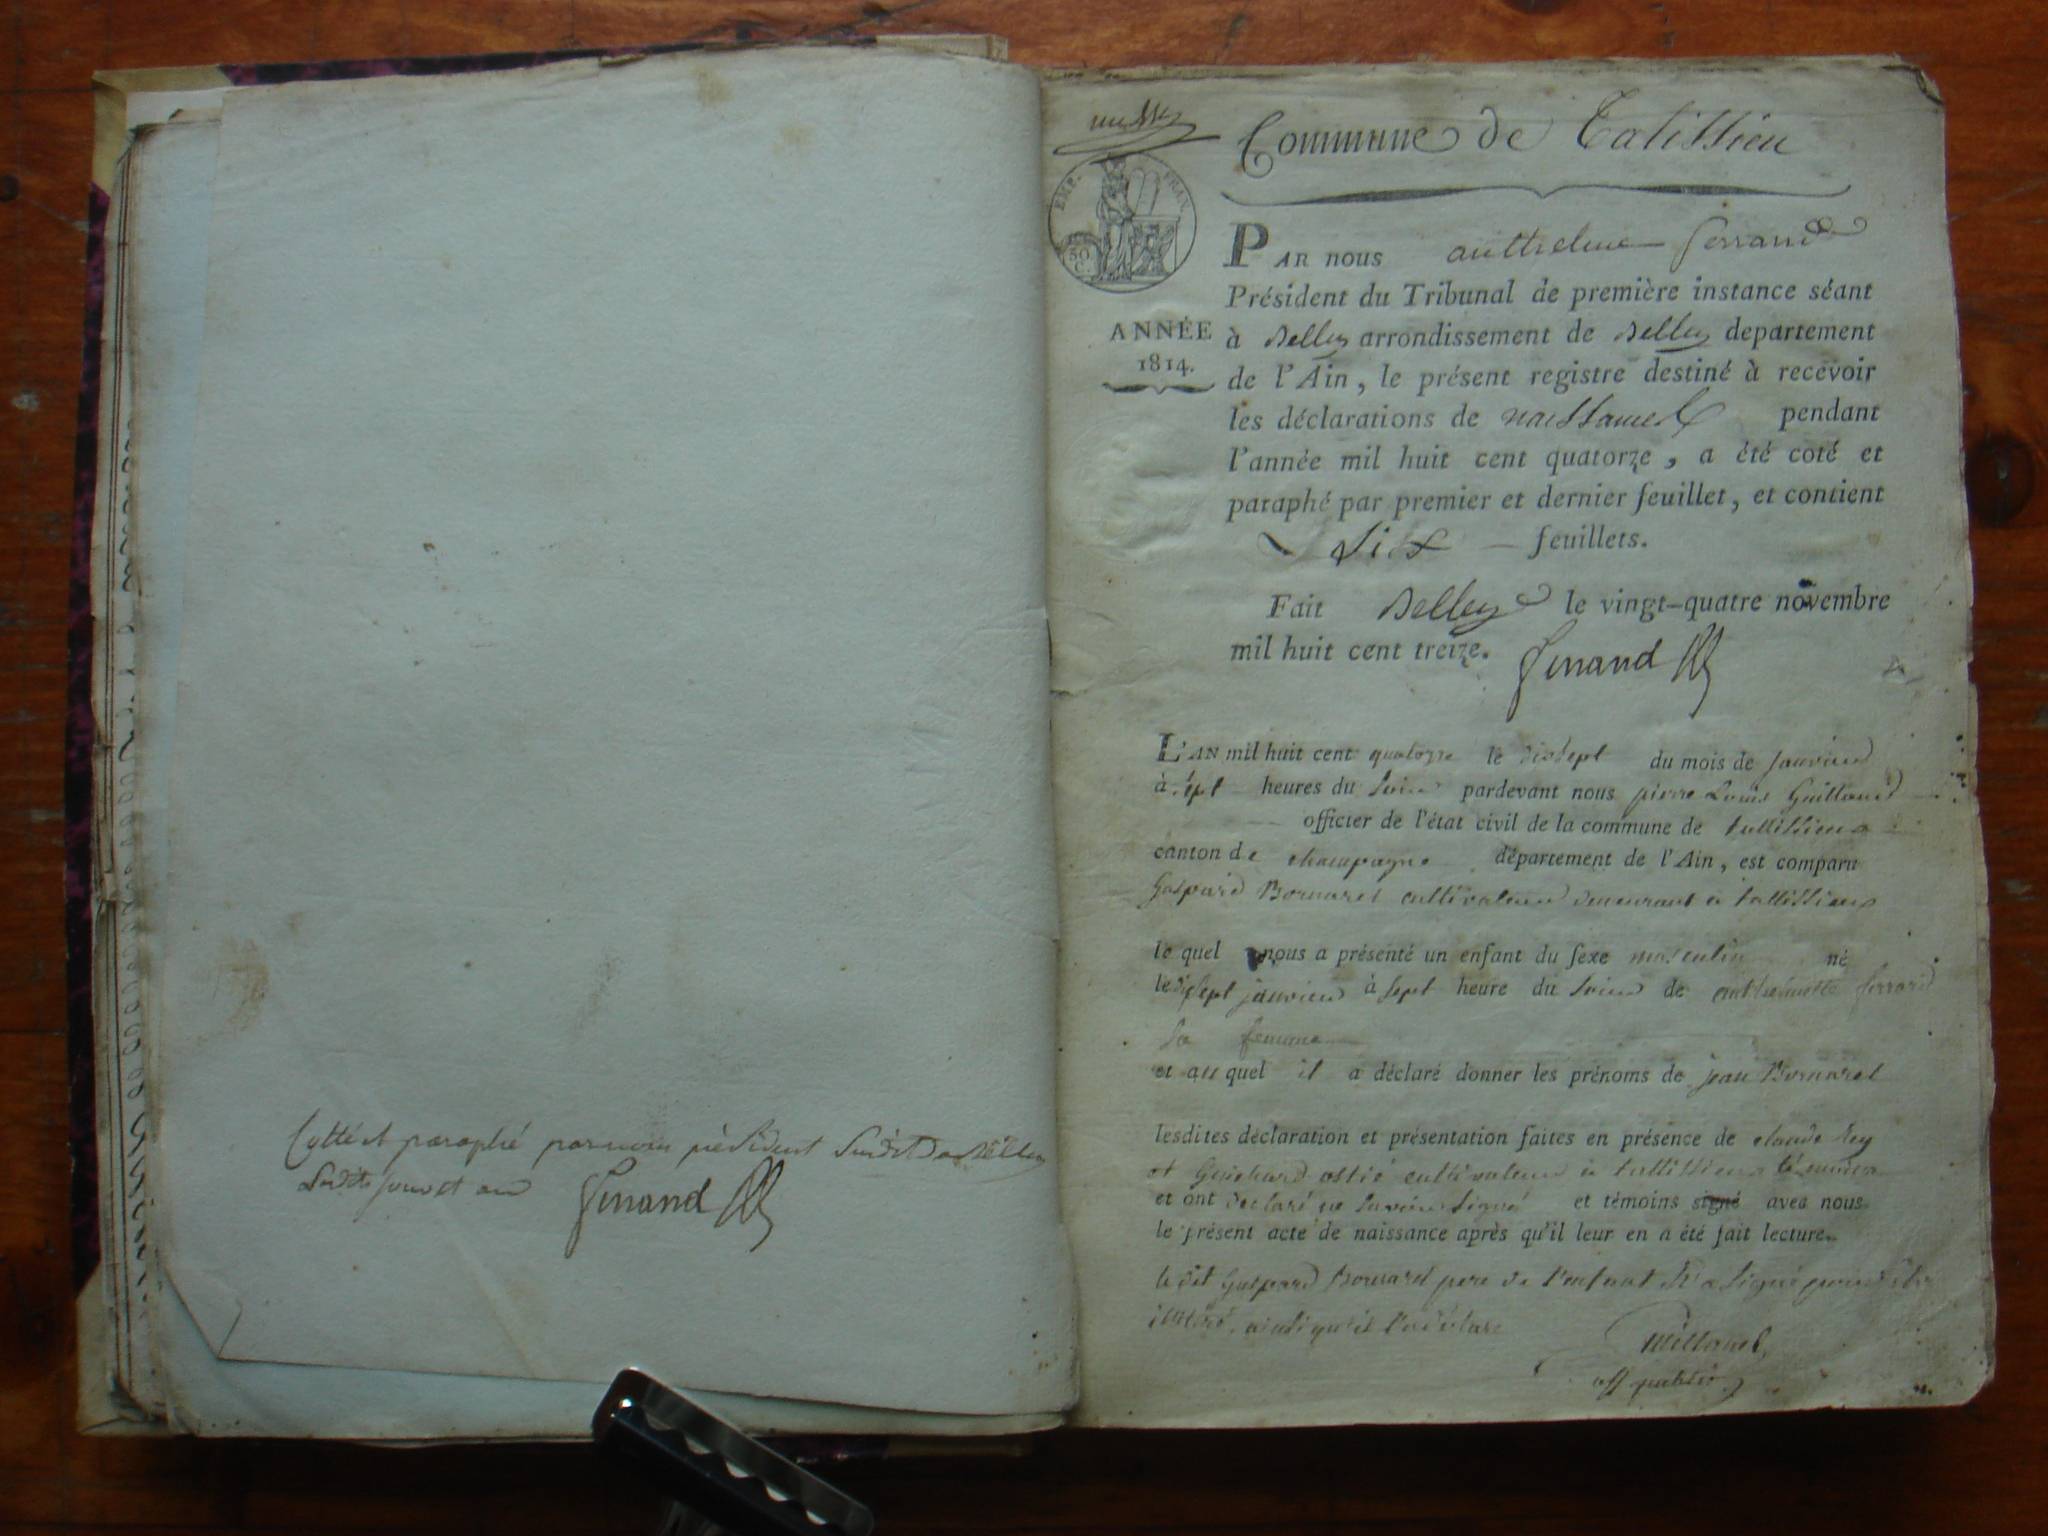 Cotté et paraphé par nous président susdit à Belley
Ferrand
Commune de Talissieu
EMP. FRAN.
50 C.
ANNÉE
1814.
PAR nous anthelme ferrand
Président du Tribunal de première instance séant
à Belley arrondissement de Belley departement
de l'Ain, le présent registre destiné à recevoir
les déclarations de naissances pendant
l'année mil huit cent quatorze, a été coté et
paraphé par premier et dernier feuillet, et contient
six feuillets.
Fait Belley le vingt-quatre novembre
mil huit cent treize. Ferrand
L'AN mil huit cent quatorze le dixsept du mois de janvier
à sept heures du soir pardevant nous pierre Louis Guillaud
officier de l'état civil de la commune de tallissieu
canton de champagne département de l'Ain, est comparu
Gaspard Bornarel cultivateur demeurant à tallissieu
le quel nous a présenté un enfant du sexe masculin né
le dixsept janvier à sept heure du soir de anthelmette ferrand
sa femme
et auquel il a déclaré donner les prénoms de jean Bornarel
lesdites déclaration et présentation faites en présence de claude Rey
et Guichard ostié cultivateurs à tallissieu témoins
et ont declaré ne savoir signé et témoins signé avec nous
le présent acte de naissance après qu'il leur en a été fait lecture.
le dit Gaspard Bornarel pere de l'enfant n'a signé pour être